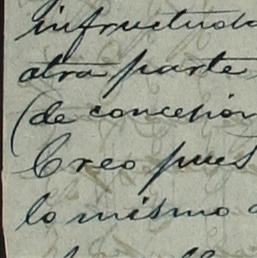 infructuo
otra parte
(de concesión
Creo pues
lo mismo